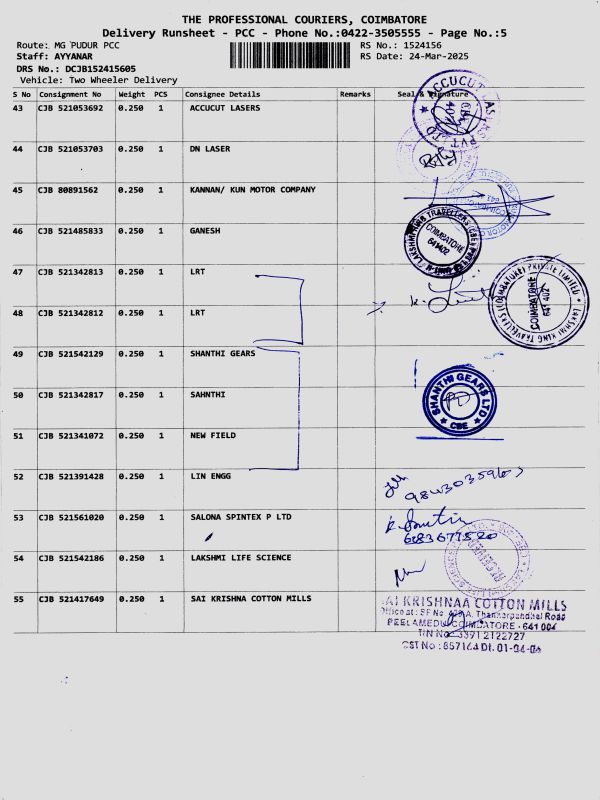 THE PROFESSIONAL COURIERS, COIMBATORE
Delivery Runsheet - PCC - Phone No.:0422-3505555 - Page No.:5
Route: MG PUDUR PCC RS No.: 1524156
Staff: AYYANAR RS Date: 24-Mar-2025
DRS No.: DCJB152415605
Vehicle: Two Wheeler Delivery
S No Consignment No Weight PCS Consignee Details Remarks Seal & Signature
43 CJB 521053692 0.250 1 ACCUCUT LASERS
44 CJB 521053703 0.250 1 DN LASER
45 CJB 80891562 0.250 1 KANNAN/ KUN MOTOR COMPANY
46 CJB 521485833 0.250 1 GANESH
COIMBATORE
641402
47 CJB 521342813 0.250 1 LRT
48 CJB 521342812 0.250 1 LRT
COIMBATORE
641 402
49 CJB 521542129 0.250 1 SHANTHI GEARS
50 CJB 521342817 0.250 1 SAHNTHI
SHANTHI GEARS LTD
CBE
51 CJB 521341072 0.250 1 NEW FIELD
52 CJB 521391428 0.250 1 LIN ENGG
53 CJB 521561020 0.250 1 SALONA SPINTEX P LTD
54 CJB 521542186 0.250 1 LAKSHMI LIFE SCIENCE
55 CJB 521417649 0.250 1 SAI KRISHNA COTTON MILLS
KRISHNAA COTTON MILLS
PEELAMEDU COIMBATORE - 641 004
TIN No 33912122727
CST No : 857164 Dt. 01-04-04